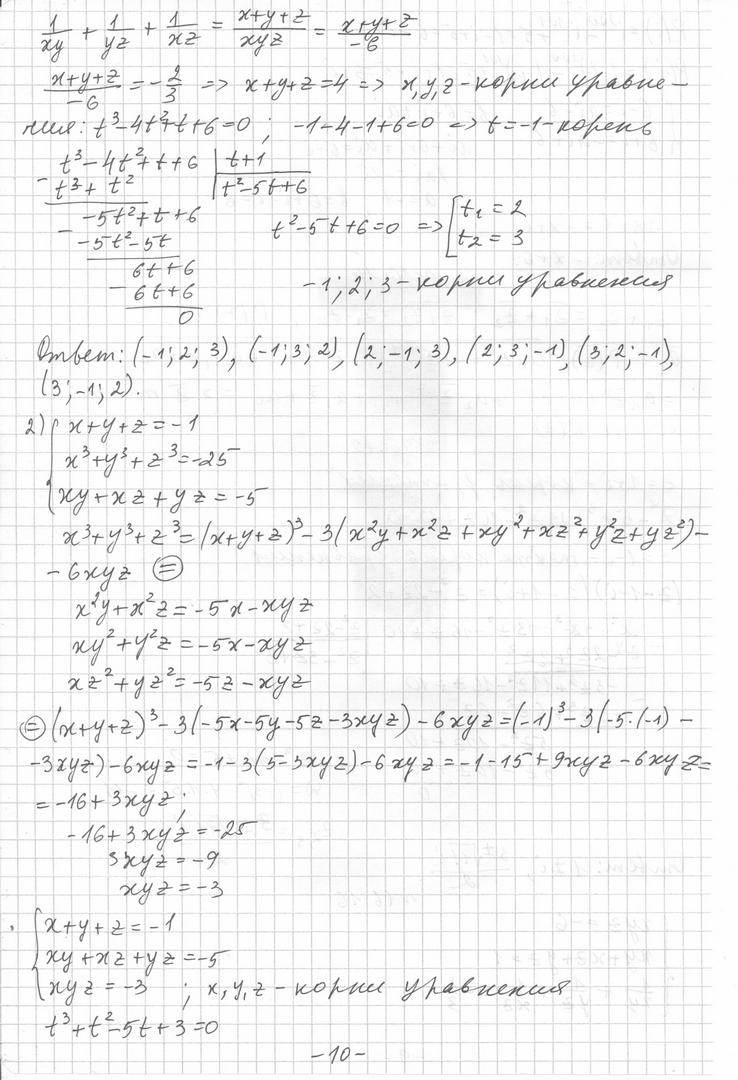 1/xy + 1/yz + 1/xz = (x+y+z)/xyz = (x+y+z)/-6
(x+y+z)/-6 = -2/3 => x+y+z=4 => x,y,z - корни уравне-
ния: t³-4t²+t+6=0 ; -1-4-1+6=0 => t=-1 - корень
t³-4t²+t+6 | t+1
- t³+t² | t²-5t+6
-5t²+t+6
- -5t²-5t
t²-5t+6=0 => [ t₁=2
t₂=3
6t+6
- 6t+6
0
-1; 2; 3 - корни уравнения
Ответ: (-1; 2; 3), (-1; 3; 2), (2; -1; 3), (2; 3; -1), (3; 2; -1),
(3; -1; 2).
2) { x+y+z=-1
x³+y³+z³=-25
xy+xz+yz=-5
x³+y³+z³=(x+y+z)³-3(x²y+x²z+xy²+xz²+y²z+yz²)-
-6xyz ⊜
x²y+x²z=-5x-xyz
xy²+y²z=-5x-xyz
xz²+yz²=-5z-xyz
⊜ (x+y+z)³-3(-5x-5y-5z-3xyz)-6xyz=(-1)³-3(-5·(-1)-
-3xyz)-6xyz=-1-3(5-3xyz)-6xyz=-1-15+9xyz-6xyz=
=-16+3xyz;
-16+3xyz=-25
3xyz=-9
xyz=-3
{ x+y+z=-1
xy+xz+yz=-5
xyz=-3 ; x,y,z - корни уравнения
t³+t²-5t+3=0
-10-